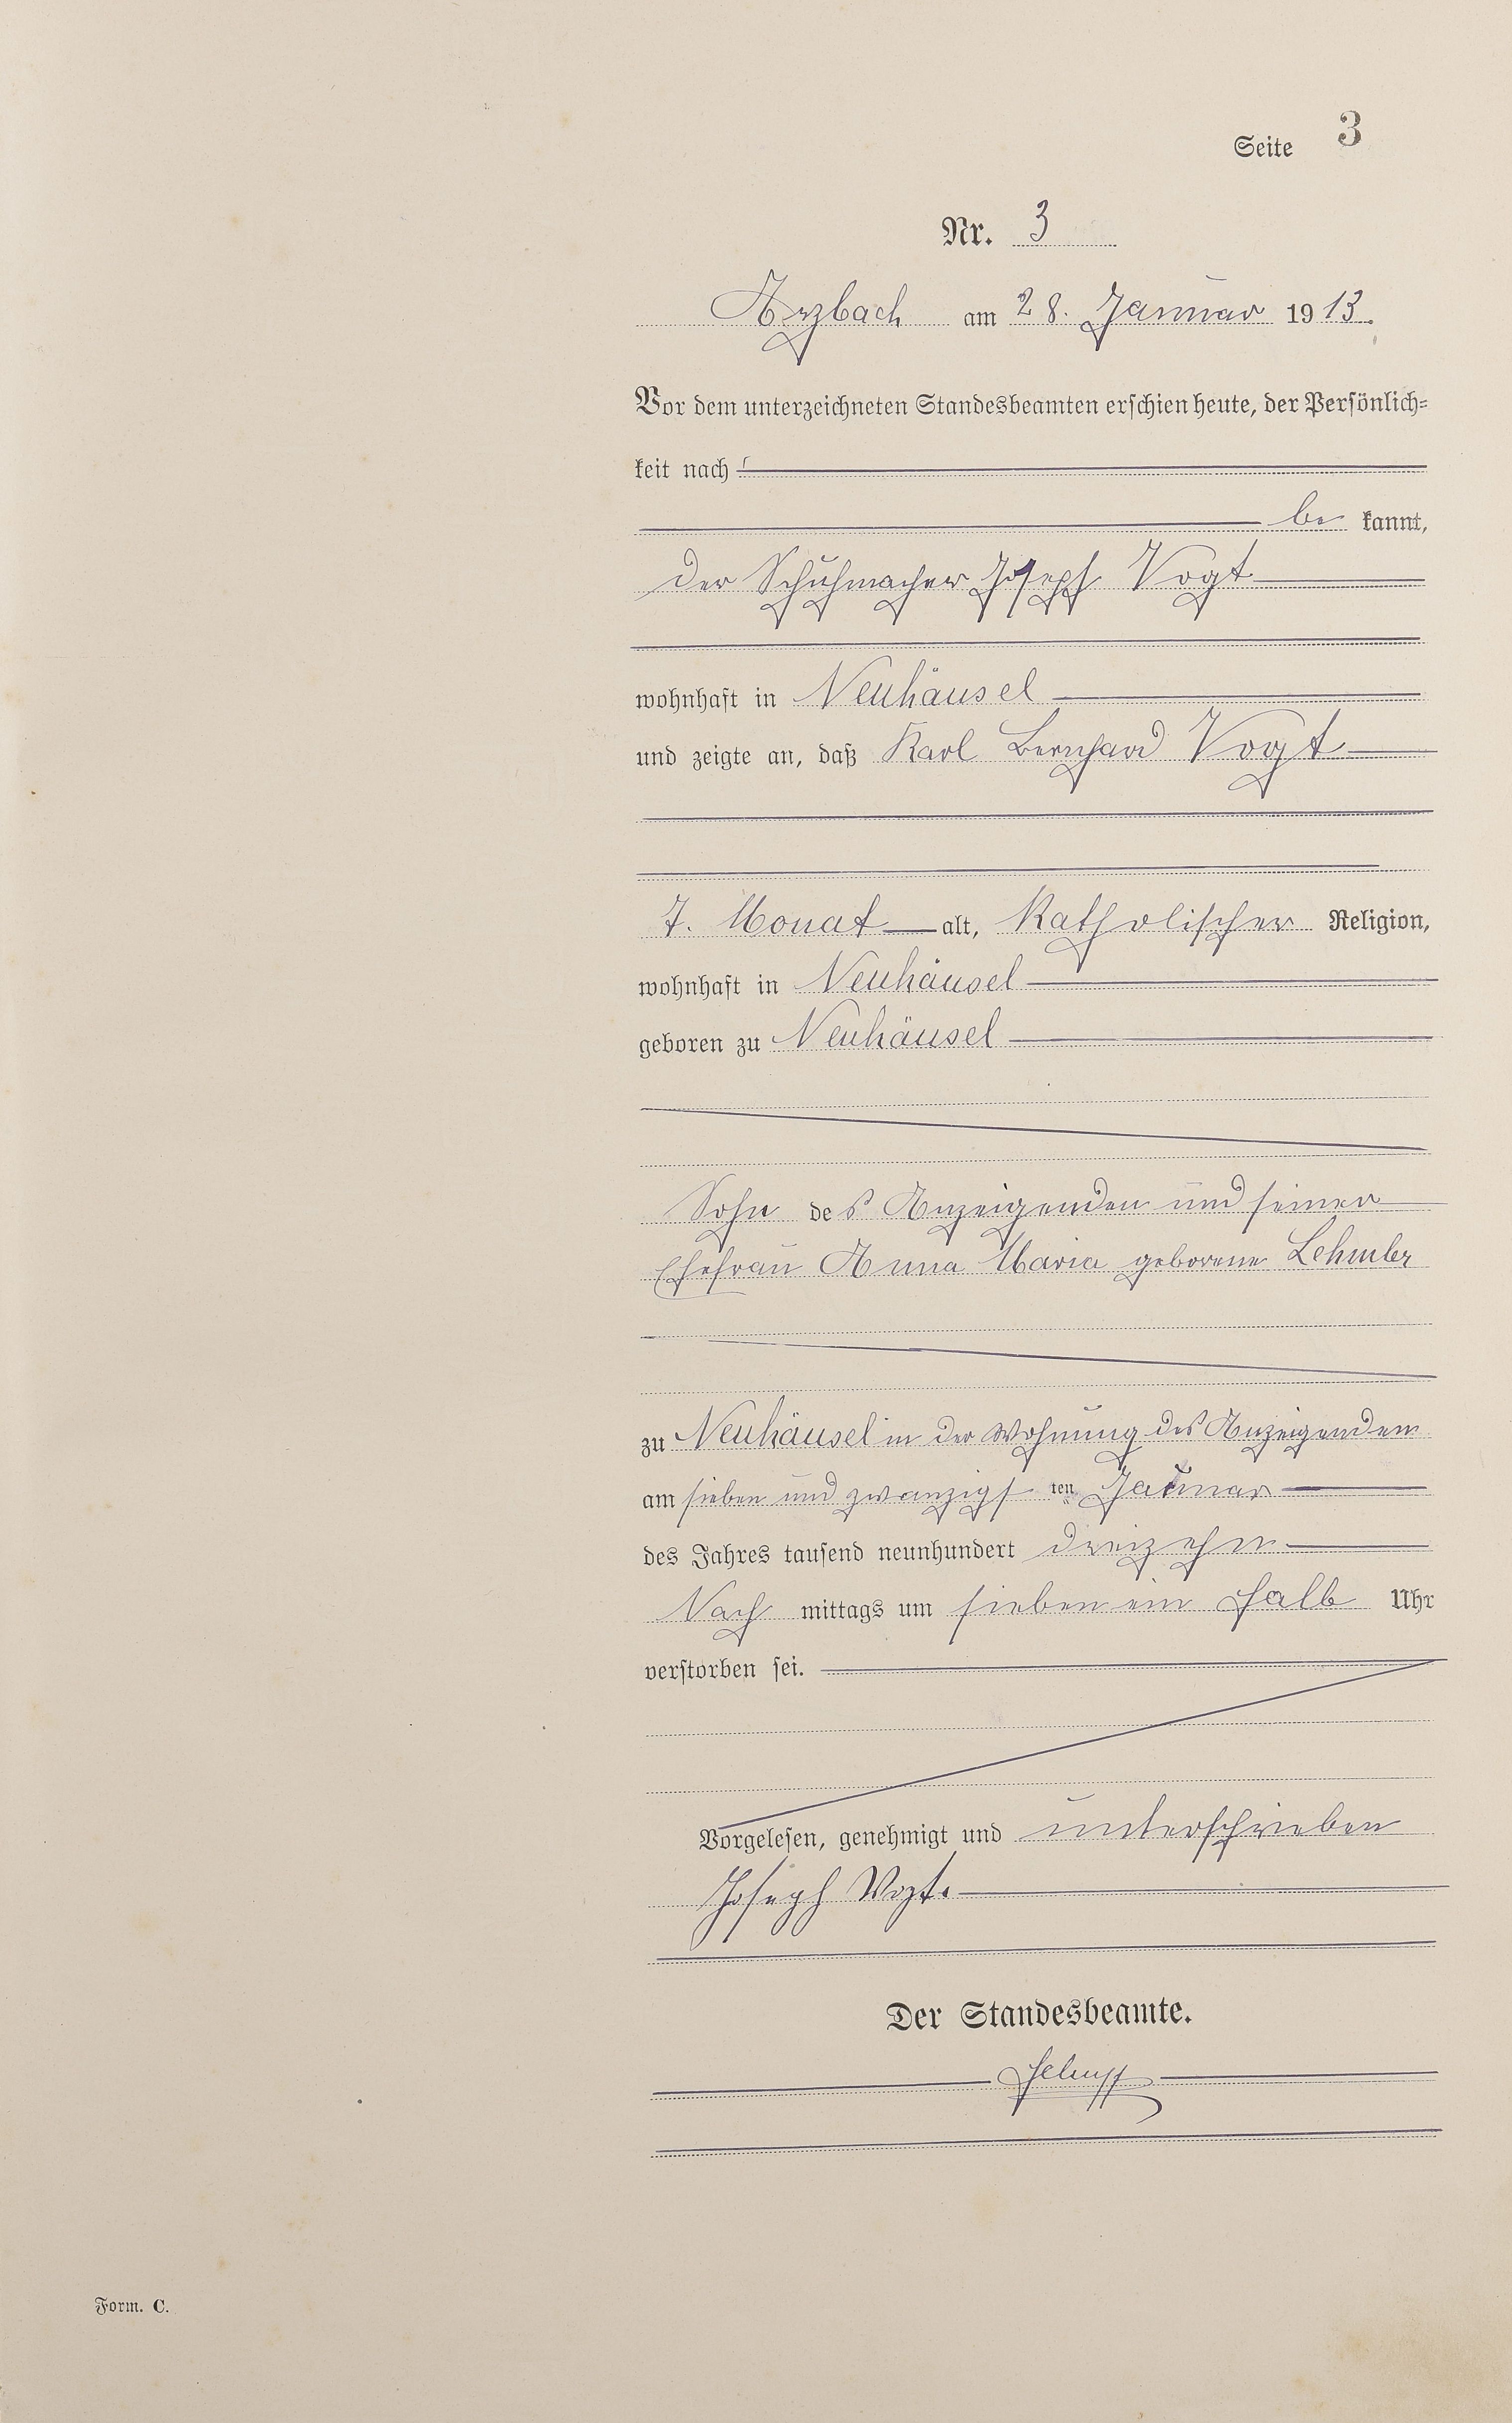 Seite 3
Nr. 3
Arzbach am 28. Januar 1913.
Vor dem unterzeichneten Standesbeamten erschien heute, der Persönlich-
keit nach
be kannt,
der Schuhmacher Joseph Vogt
wohnhaft in Neuhäusel
und zeigte an, daß Karl Bernhard Vogt
7. Monat alt, Katholischer Religion,
wohnhaft in Neuhäusel
geboren zu Neuhäusel
Sohn des Anzeigenden und seiner
Ehefrau Anna Maria geborene
zu Neuhäusel in der Wohnung des Anzeigenden
am sieben und zwanzigs ten Januar
des Jahres tausend neunhundert dreizehn
Nach mittags um sieben ein halb Uhr
verstorben sei.
Vorgelesen, genehmigt und unterschrieben
Joseph Vogt.
Der Standesbeamte.
Form. C.